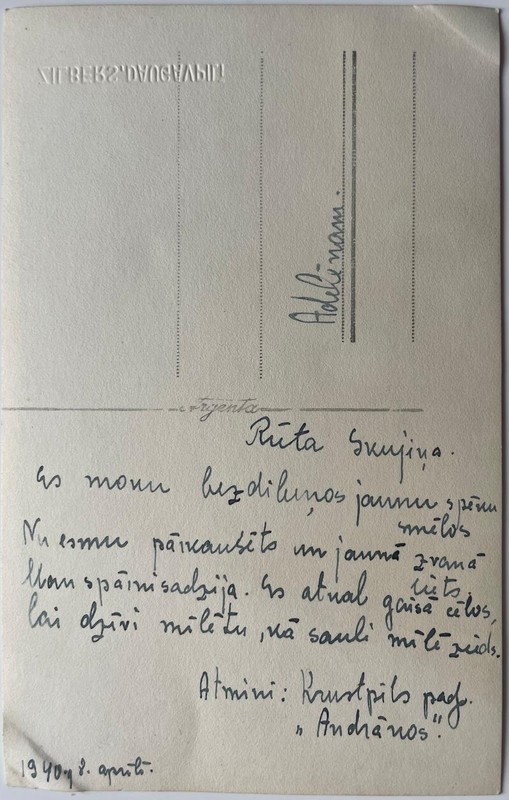 ZILBERS, DAUGAVPILĪ
Adelēnam.
Argenta
Rūta Skujiņa.
Es monu bezdibeņos jaunu spēku
smēlos
Nu esmu pārkausēts un jaunā zvanā
liets,
Man spārni sadzija. Es atkal gaisā cēlos,
lai dzīvi mīlētu, kā sauli mīlē zieds.
Atmiņi: Krustpils pag.
"Andrānos".
1940.g 8. aprīlī.